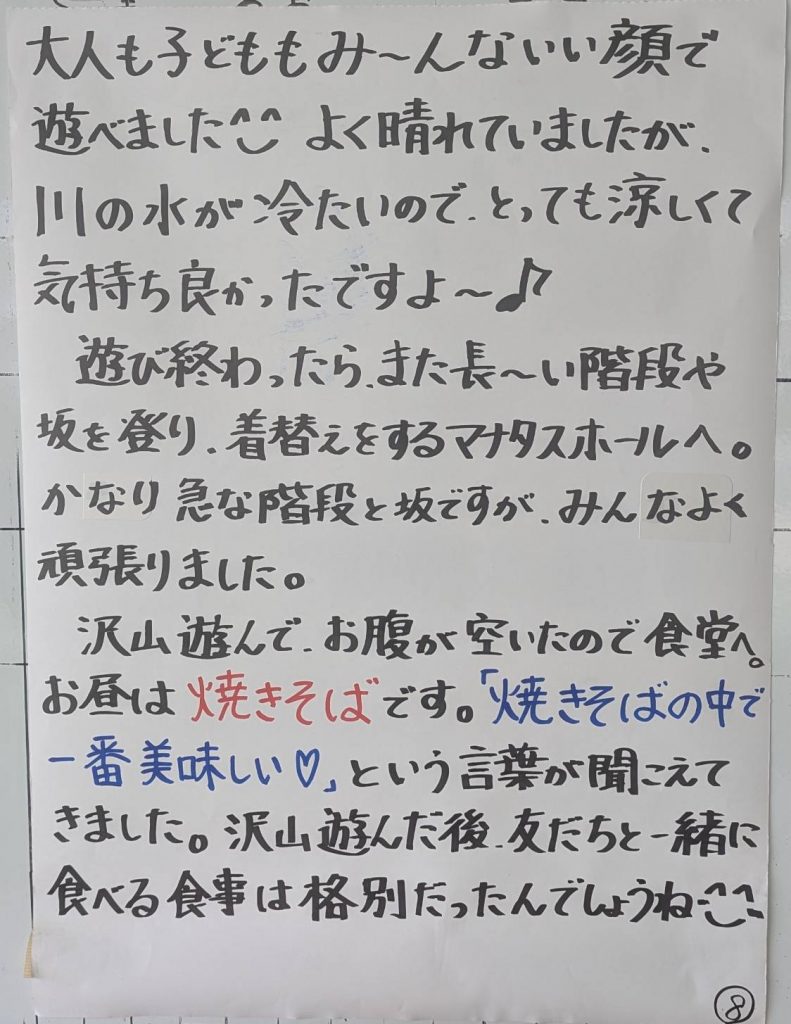 大人も子どももみ～んないい顔で
遊べました^^ よく晴れていましたが、
川の水が冷たいので、とっても涼しくて
気持ち良かったですよ～♪
遊び終わったら、また長～い階段や
坂を登り、着替えをするマナタスホールへ。
かなり急な階段と坂ですが、みんなよく
頑張りました。
沢山遊んで、お腹が空いたので食堂へ。
お昼は焼きそばです。「焼きそばの中で
一番美味しい♡」という言葉が聞こえて
きました。沢山遊んだ後、友だちと一緒に
食べる食事は格別だったんでしょうね^^
⑧